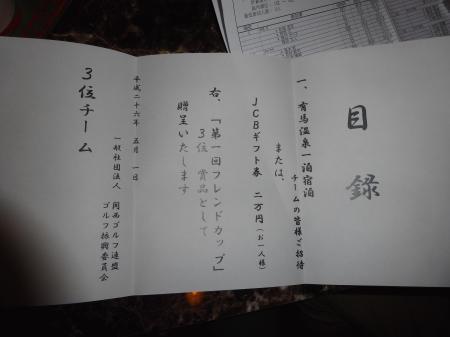 目録
一、有馬温泉一泊宿泊
チームの皆様ご招待
または、
JCBギフト券 二万円(お一人様)
右、「第一回フレンドカップ」
3位 賞品として
贈呈いたします
平成二十六年 五月 一日
一般社団法人 関西ゴルフ連盟
ゴルフ振興委員会
3位チーム